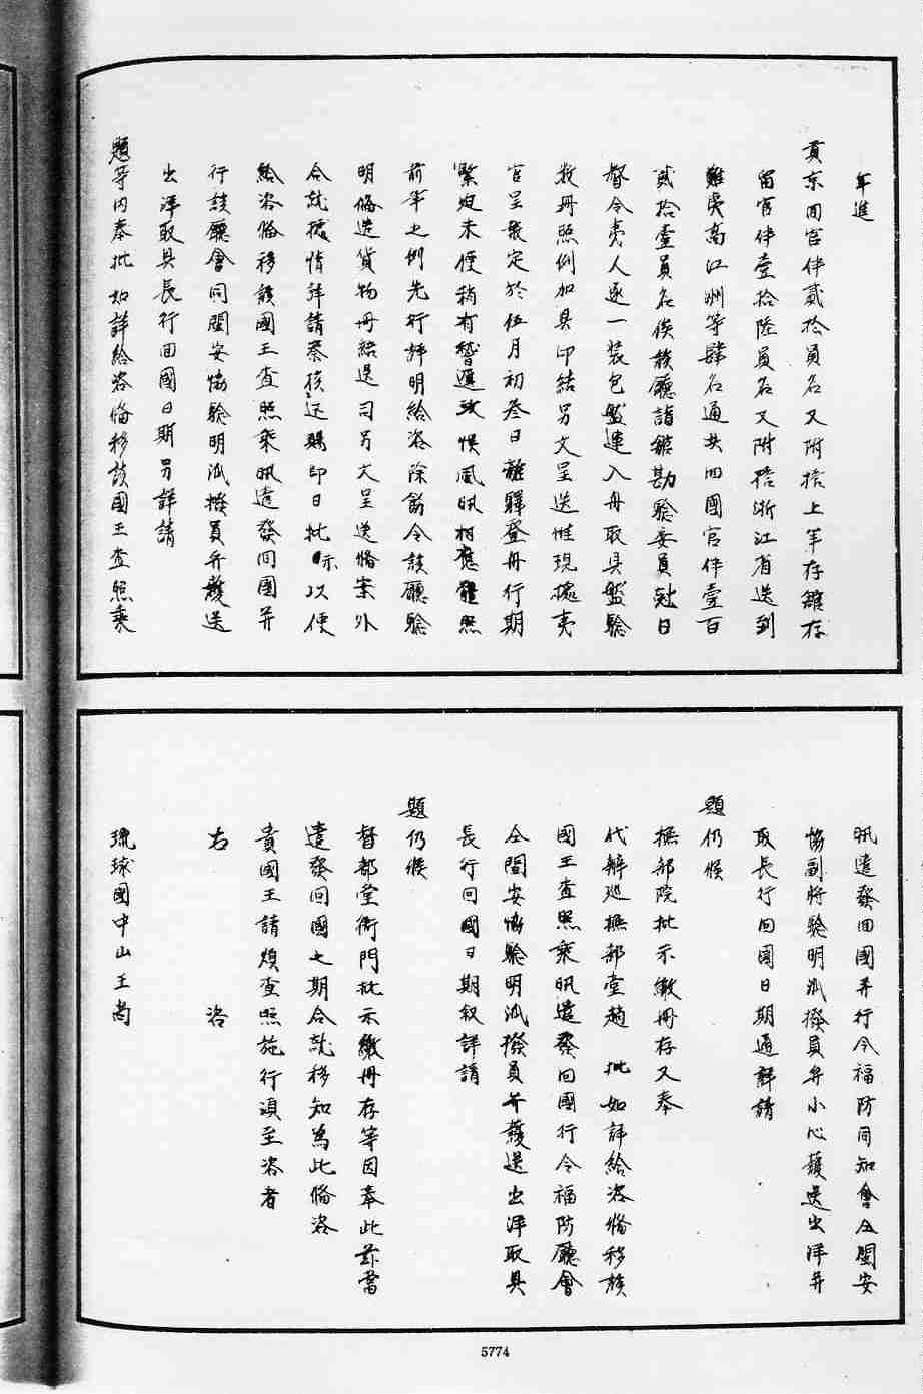 年進
貢京回官伴貳拾員名又附搭上年存舘存
留官伴壹拾陸員名又附搭浙江省送到
難夷高江洲等肆名通共回國官伴壹百
貳拾壹員名俟該廳詣舘勘驗委員尅日
督令夷人逐一裝包盤運入舟取具盤驗
救冊照例加具印結另文呈送惟現據夷
官呈報定於伍月初叁日離驛登舟行期
緊迫未便稍有稽遲致悞風汛相應循照
前年之例先行詳明給咨除飭令該廳驗
明備造貨物冊結送司另文呈送備案外
合就據情詳請察核迅賜印日批示以便
給咨備移該國王查照乘汛遣發回國并
行該廳會同閩安協驗明派撥員弁護送
出洋取具長行回國日期另詳請
題等因奉批如詳給咨備移該國王查照乘
汛遣發回國并行令福防同知會仝閩安
協副將驗明派撥員弁小心護送出洋并
取長行回國日期通詳請
題仍候
撫部院批示繳冊存又奉
代辦巡撫部堂趙 批如詳給咨備移該
國王查照乘汛遣發回國行令福防廳會
仝閩安協驗明派撥員弁護送出洋取具
長行回國日期叙詳請
題仍候
督都堂衙門批示繳冊存等因奉此茲當
遣發回國之期合就移知為此備咨
貴國王請煩查照施行須至咨者
右 咨
琉球國中山王尚
5774